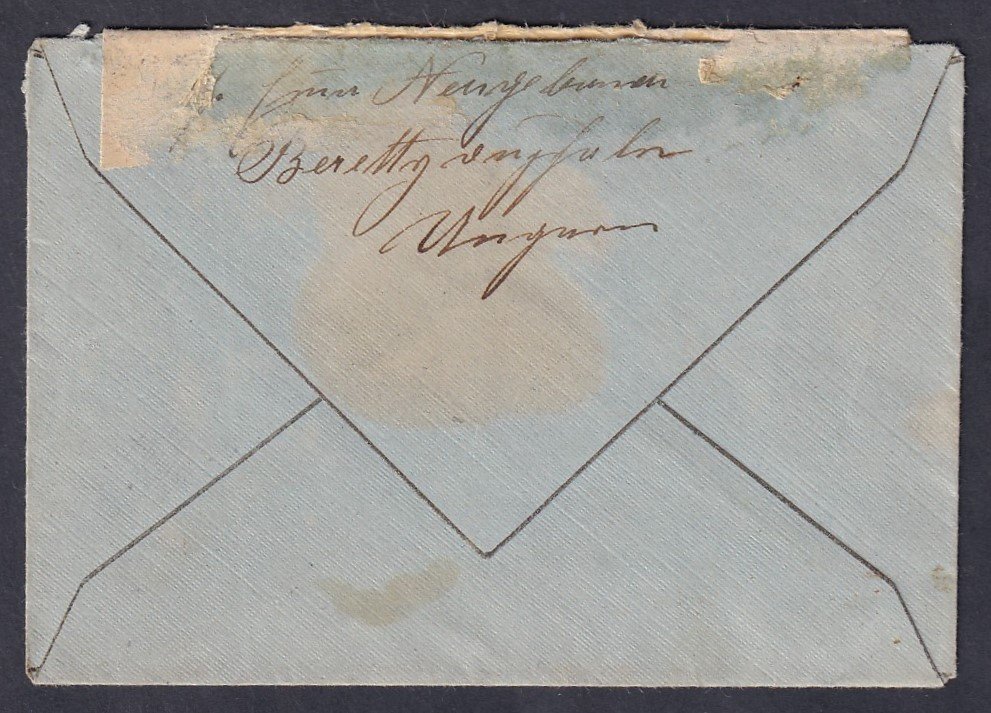 Neugebauer
Berettyoujfalu
Ungarn